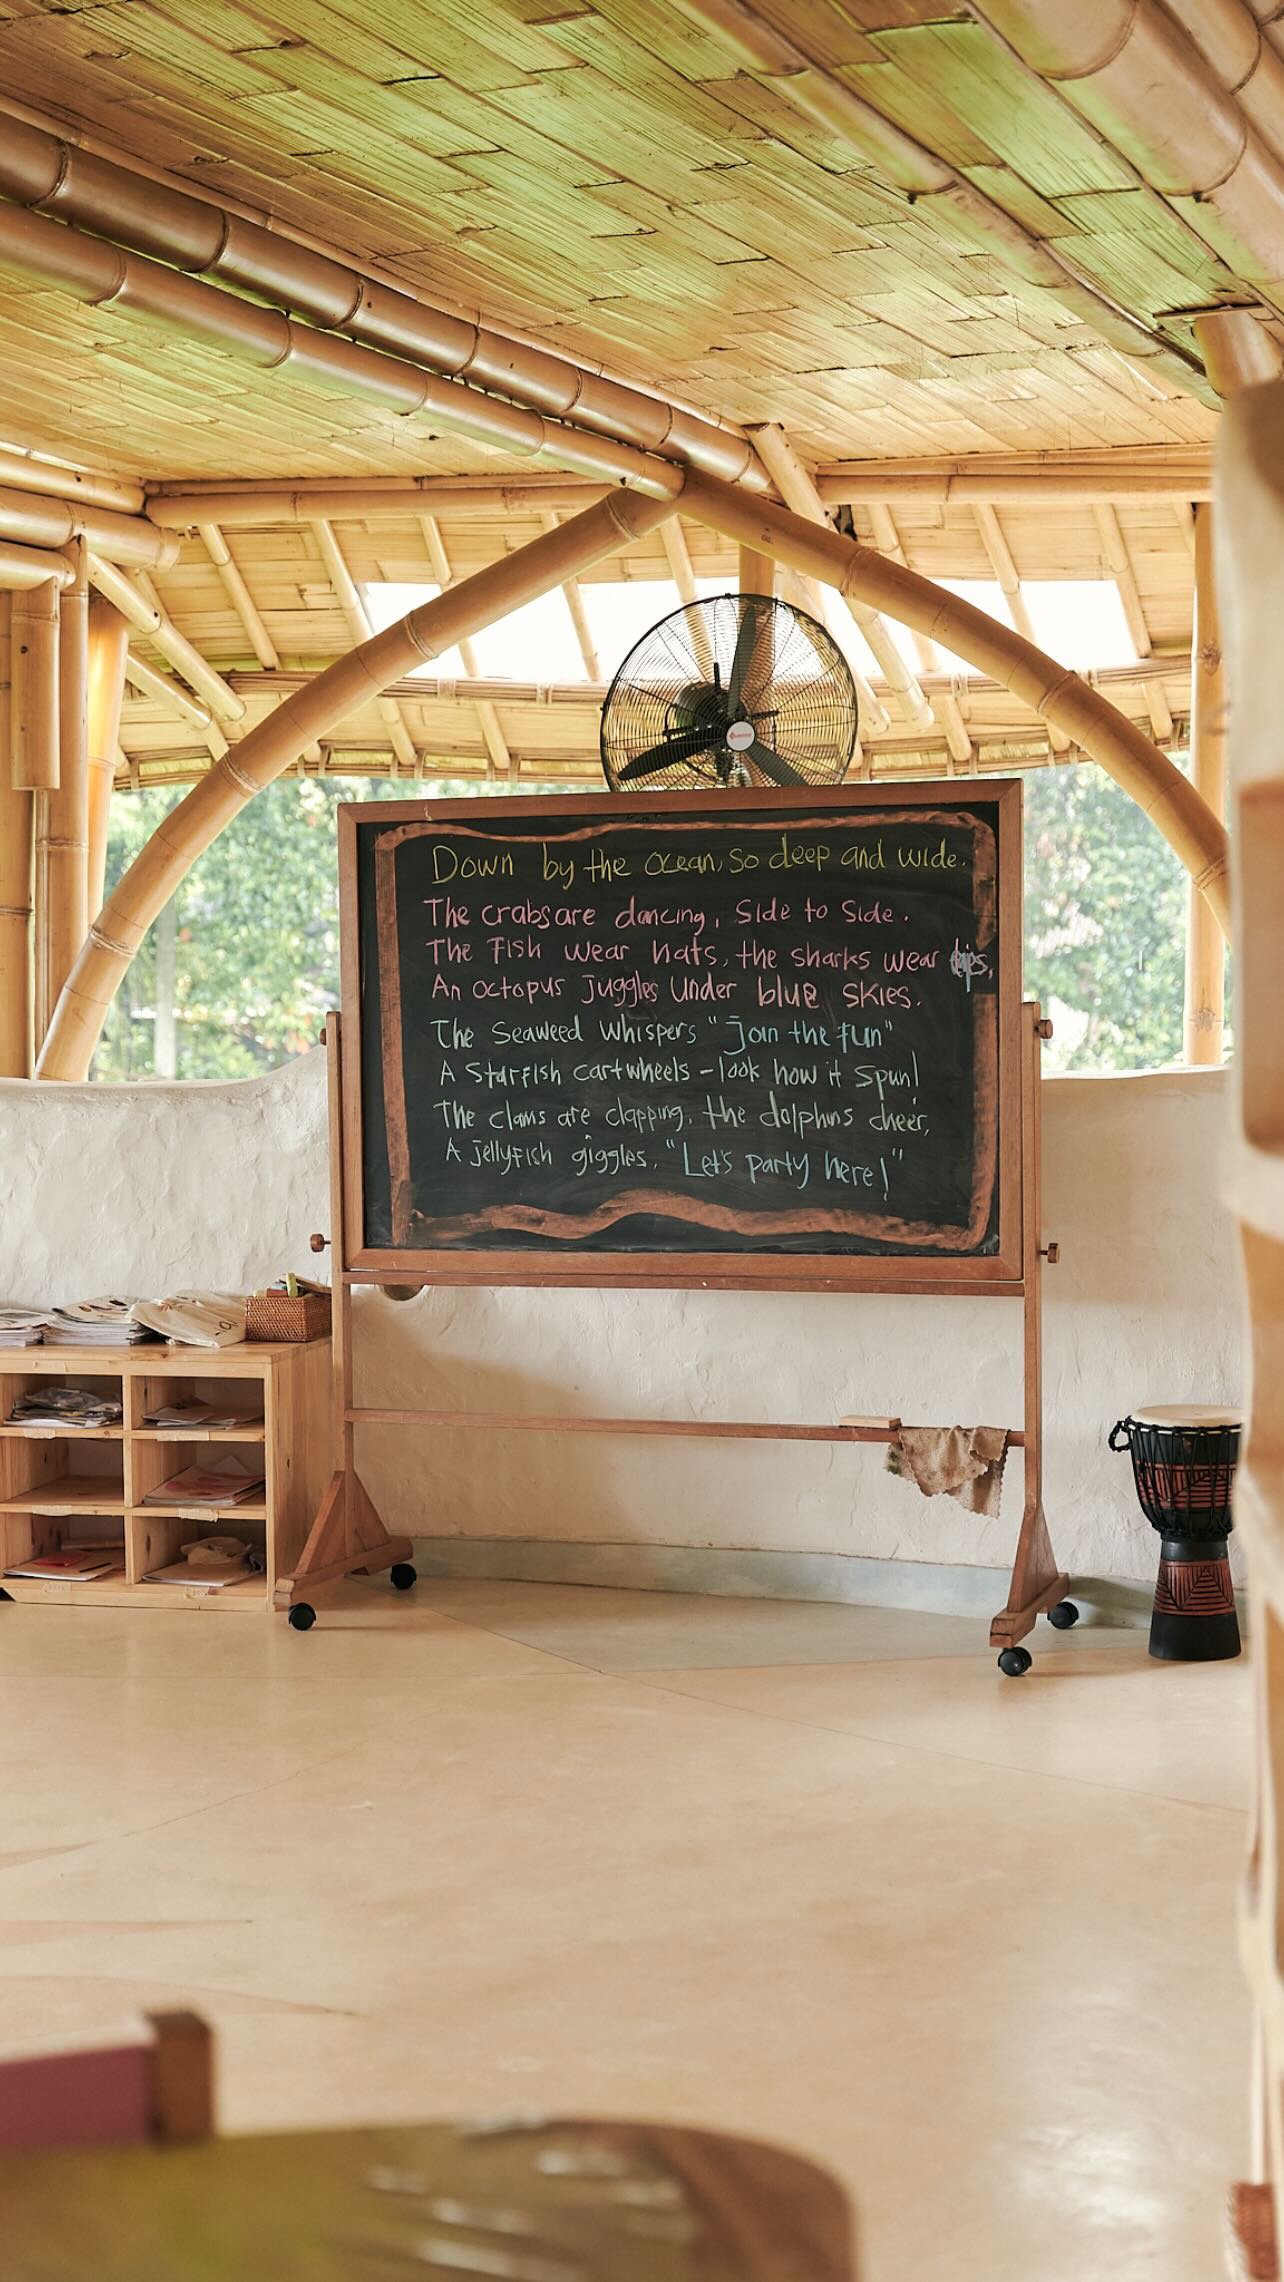 Down by the ocean, so deep and wide.
The crabs are dancing, Side to Side.
The fish wear hats, the sharks wear
An octopus juggles under blue skies.
The Seaweed Whispers "Join the fun"
A Starfish cartwheels - look how it spun!
The clams are clapping, the dolphins cheer,
A jellyfish giggles, "Let's party here!"